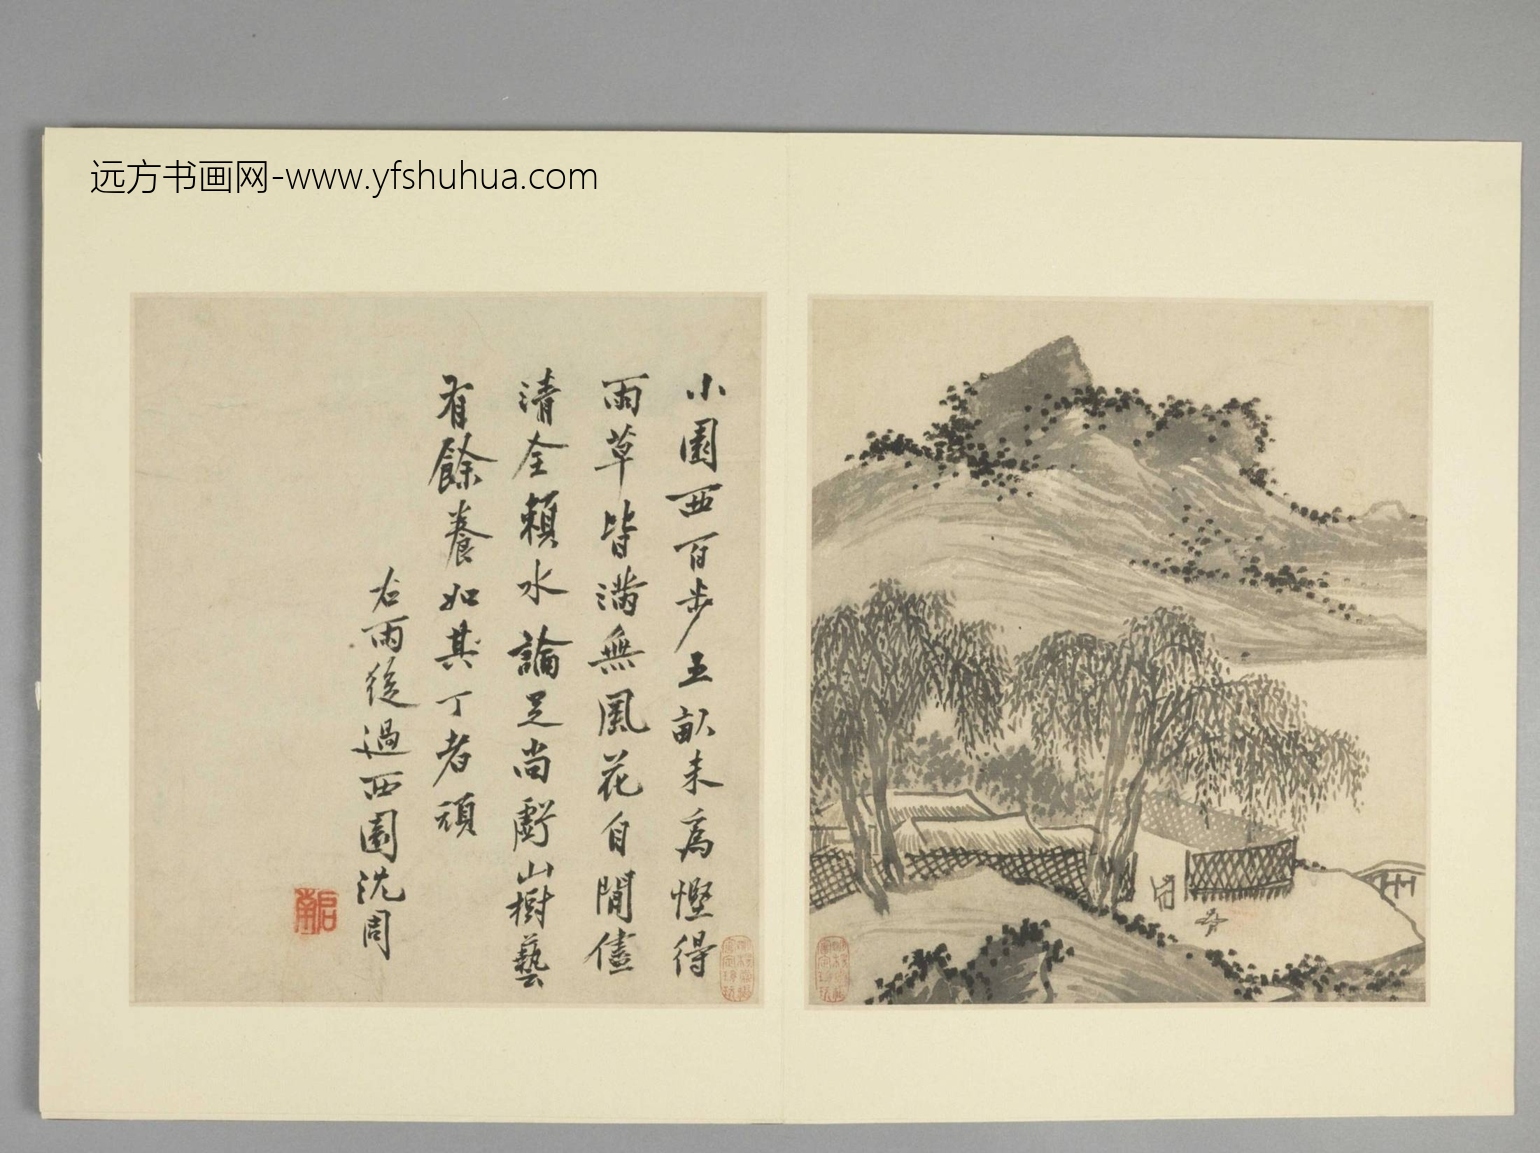 远方书画网-www.yfshuhua.com
小園西百步五畝未為慳得
雨草皆滿無風花自閒儘
清全賴水論足尚虧山樹藝
有餘養如其丁者頑
右雨後過西園沈周
啟南